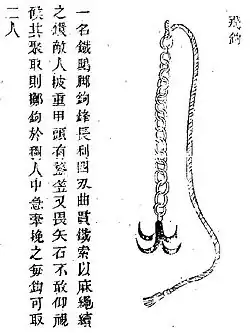 飛鈎
一名鐵鴟脚鉤鋒長利四刃曲貫鐵索以麻繩續
之敵人披重甲頭有鍪笠又畏矢石不敢仰視
候其聚取則擲鉤於稠人中急牽挽之每鉤可取
二人